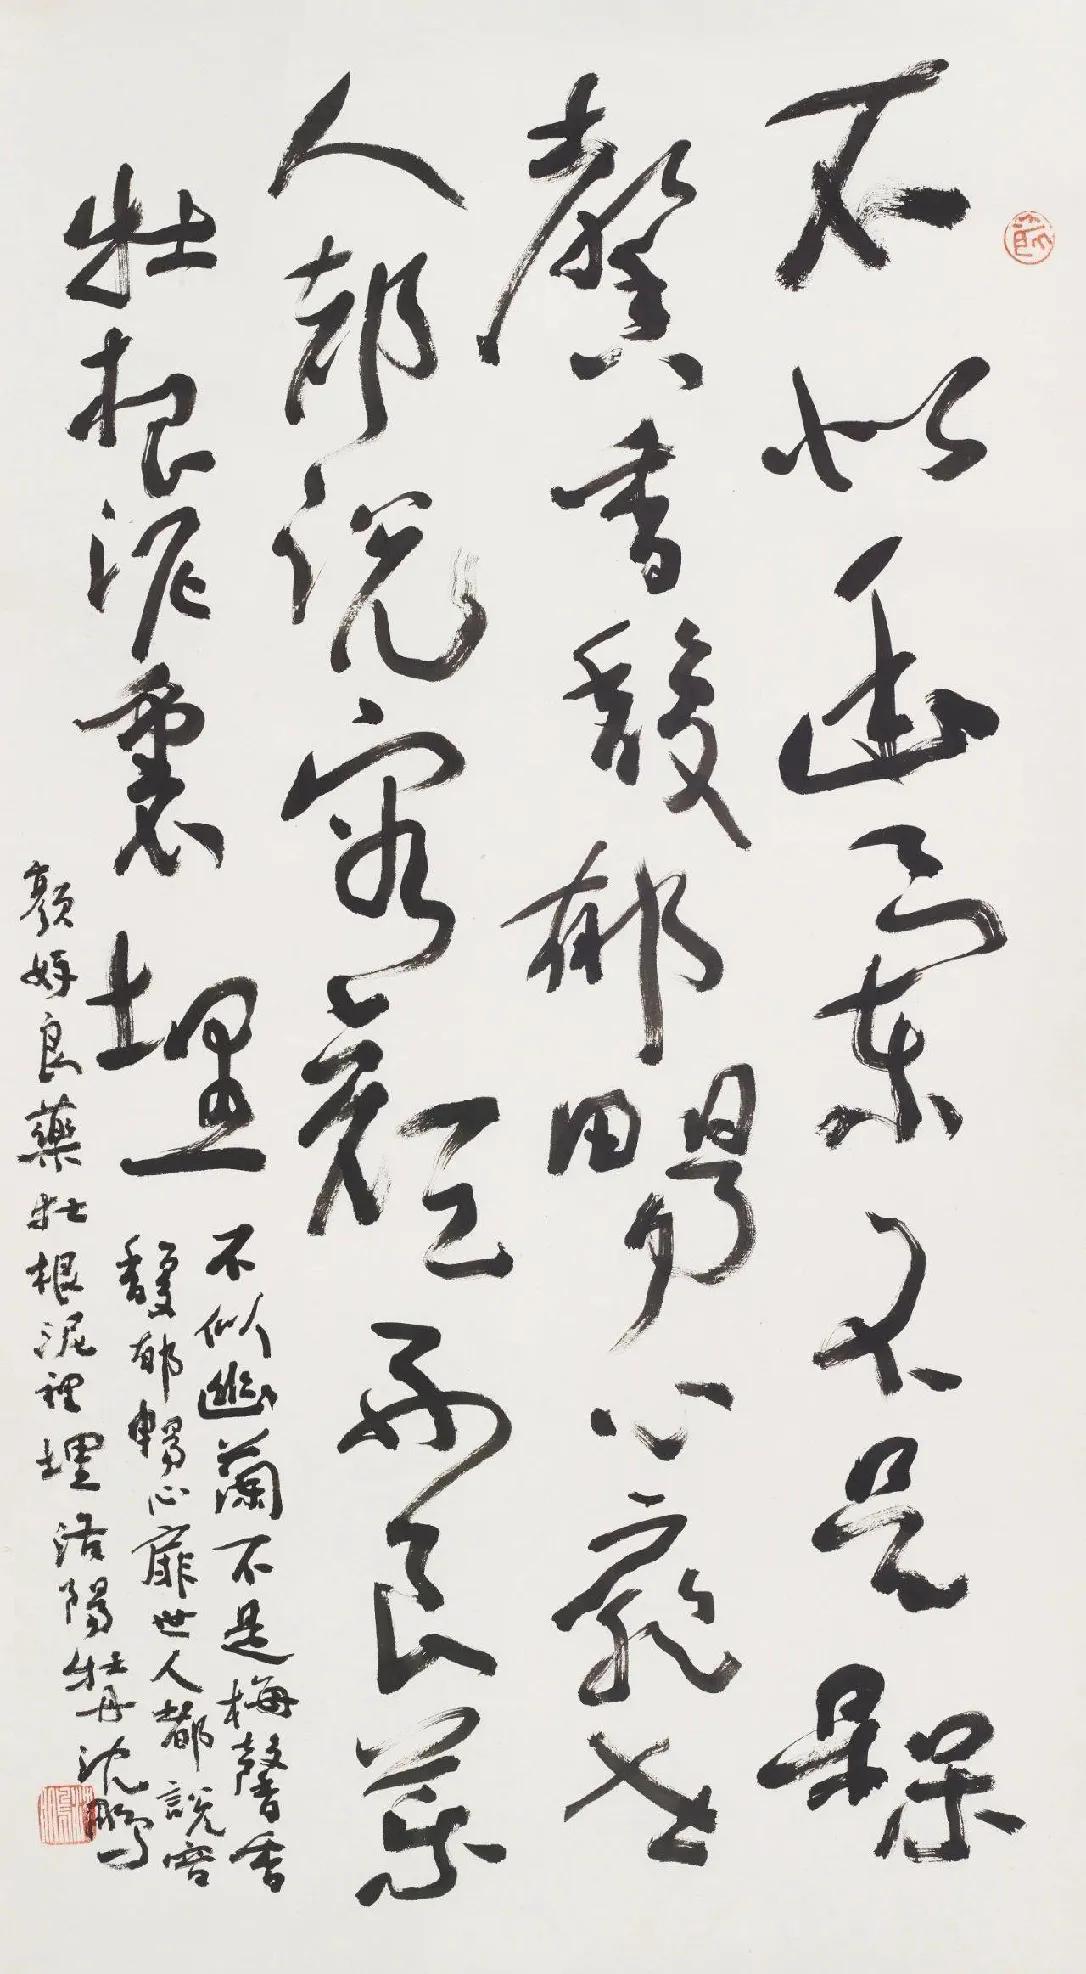 不似幽蘭不是槑
馨香馥郁畼心扉世
人都説容顔好良藥
牡根泥裏埋
不似幽蘭不是梅馨香
馥郁暢心扉世人都說容
顔好良藥牡根泥裡埋洛陽牡丹沈鵬